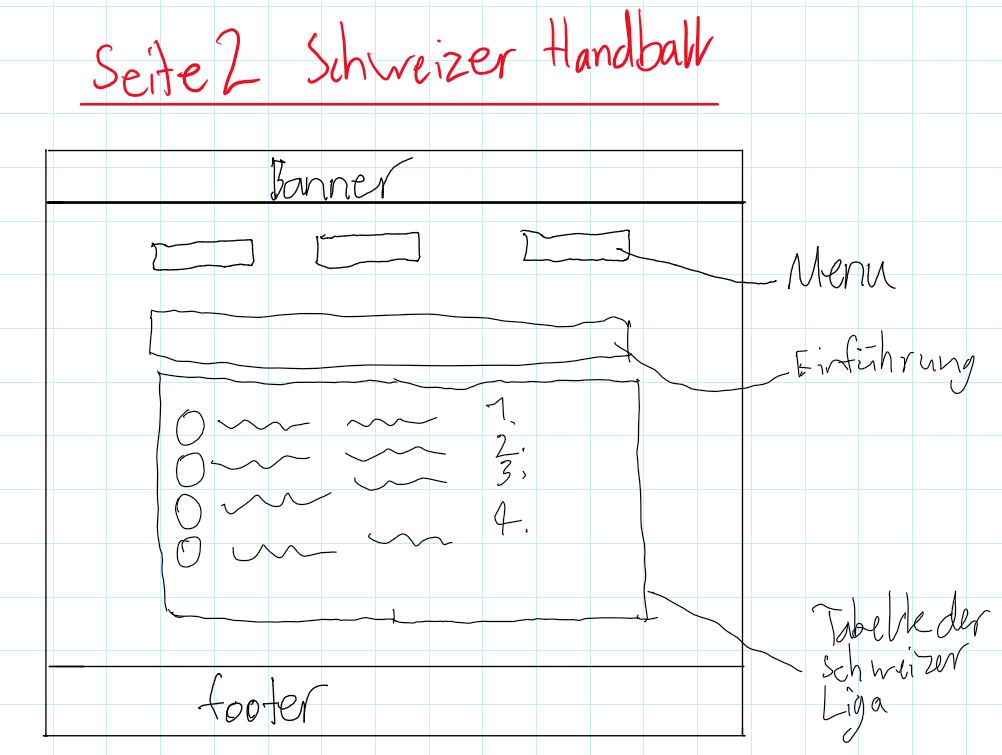 Seite 2 Schweizer Handball
Banner
Menu
Einführung
1.
2.
3.
4.
Tabelle der
schweizer
Liga
footer